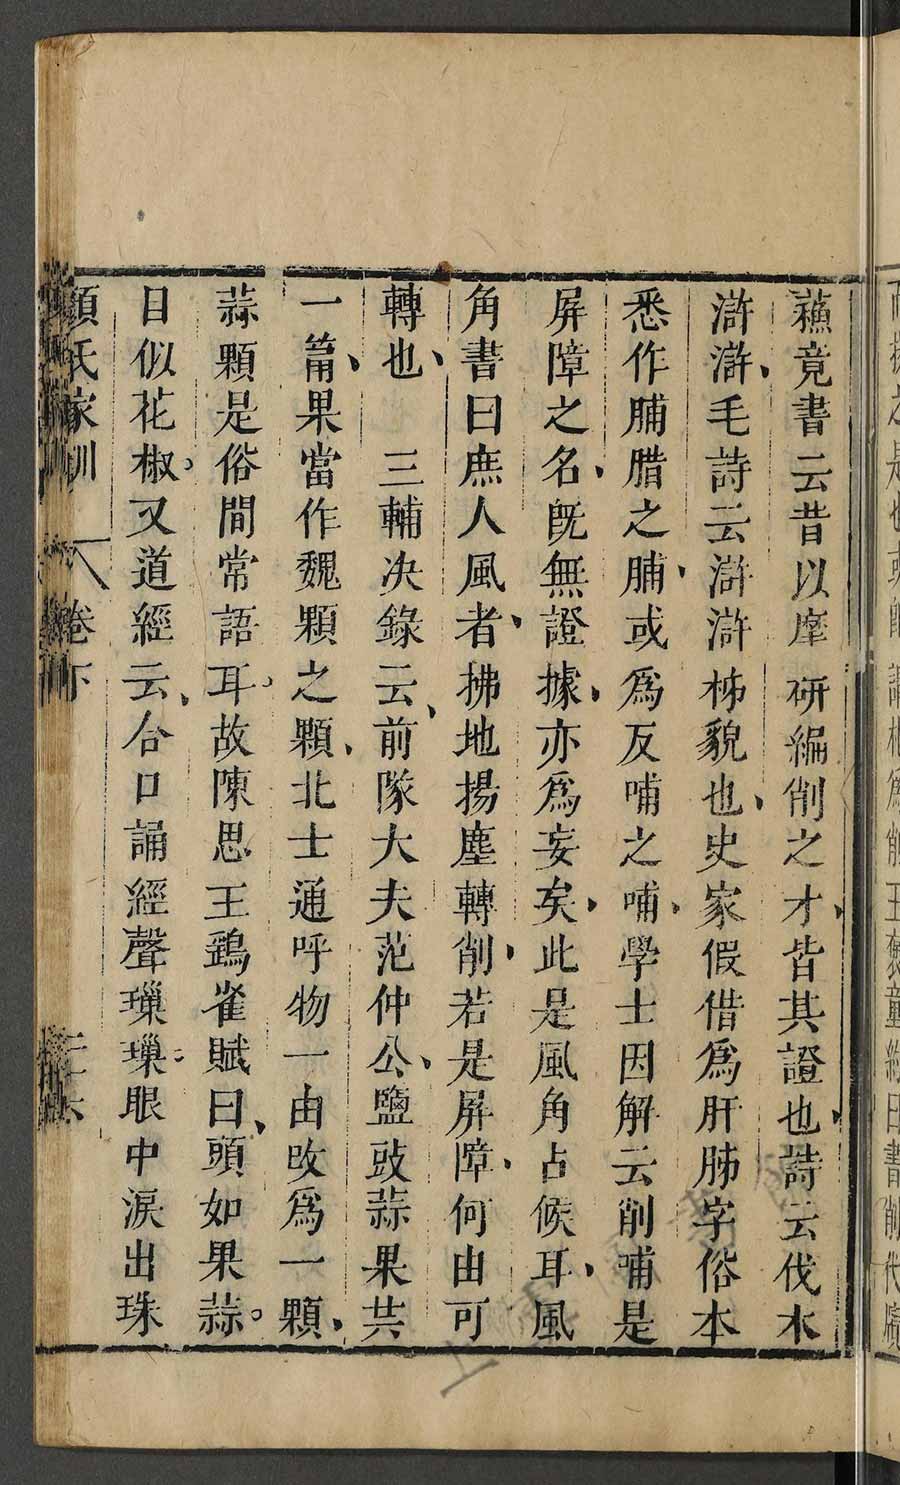 蘓竟書云昔以摩研編削之才皆其證也詩云伐木
滸滸毛詩云滸滸柹貌也史家假借爲肝肺字俗本
悉作脯腊之脯或爲反哺之哺學士因解云削哺是
屏障之名既無證據亦爲妄矣此是風角占候耳風
角書曰庶人風者拂地揚塵轉削若是屏障何由可
轉也　三輔决錄云前隊大夫范仲公鹽豉蒜果共
一筩果當作魏顆之顆北士通呼物一由改爲一顆
蒜顆是俗間常語耳故陳思王鷂雀賦曰頭如果蒜
目似花椒又道經云合口誦經聲璅璅眼中淚出珠
顏氏家訓　卷下